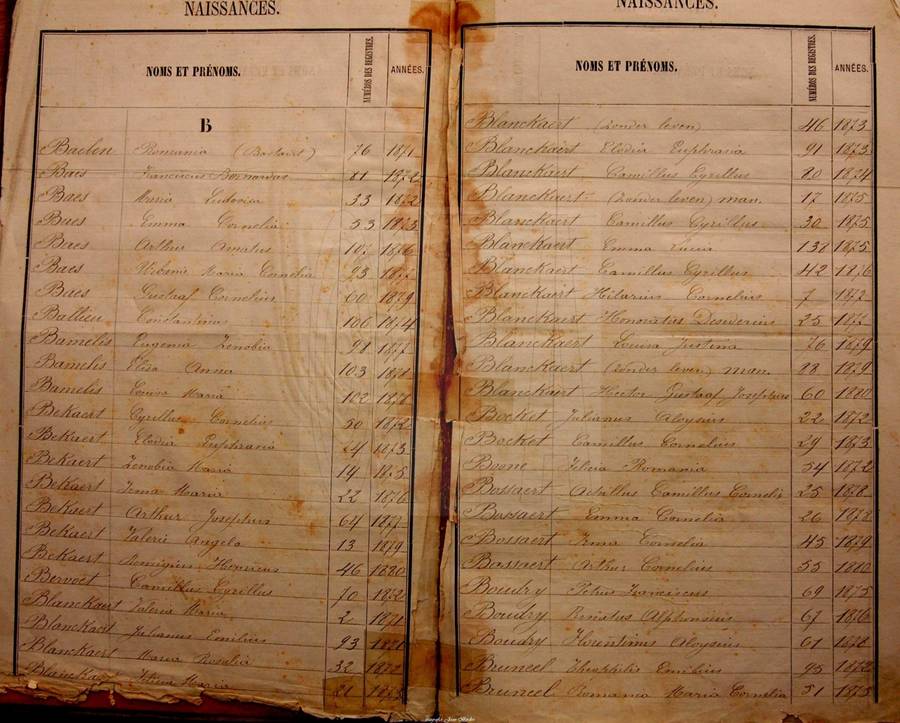 NAISSANCES.
NOMS ET PRÉNOMS. NUMÉROS DES REGISTRES. ANNÉES.
B
Baelen Romania (Bastaert) 76 1871
Baes Franciscus Bernardus 81 1872
Baes Maria Ludovica 33 1872
Baes Emma Cornelia 53 1875
Baes Arthur Amatus 107 1876
Baes Maria Cornelia 93 1877
Baes Gustaaf Cornelius 60 1879
Ballieu Constantinus 106 1874
Bamelis Eugenia Zenobia 98 1877
Bamelis Elisa Anna 103
Bamelis Louisa Maria 102
Bekaert Cyrillus Cornelius 50 1872
Bekaert Elodia Euphrasia 24 1873
Bekaert Zenobia Maria 14 1875
Bekaert Irma Maria 22 1876
Bekaert Arthur Josephus 64 1877
Bekaert Valerie Angela 13 1879
Bekaert Remigius Henricus 46 1880
Bervoet Camillus Cyrillus 70 1872
Blanckaert Valerie Maria 2 1871
Blanckaert Julianus Emilius 93 1871
Blanckaert Maria Rosalia 32 1872
Blanckaert Maria 21
NAISSANCES.
NOMS ET PRÉNOMS. NUMÉROS DES REGISTRES. ANNÉES.
Blanckaert (zonder leven) 46 1873
Blanckaert Elodia Euphrasia 91 1873
Blanckaert Camillus Cyrillus 80 1874
Blanckaert (zonder leven) man. 17 1875
Blanckaert Camillus Cyrillus 30 1875
Blanckaert Emma Lucia 1875
Blanckaert Camillus Cyrillus 42 1876
Blanckaert Hilarius Cornelius 7 1877
Blanckaert Honoratus Desiderius 25 1877
Blanckaert Louisa Justina 76 1879
Blanckaert (zonder leven) man. 88 1879
Blanckaert Hector Gustaaf Josephus 60 1880
Bocket Julianus Aloysius 22 1872
Bocket Camillus Cornelius 29 1873
Boone Felicia Romania 54 1872
Bossaert Achillus Camillus Cornelis 25 1878
Bossaert Emma Cornelia 26 1878
Bossaert Irma Cornelia 45 1879
Bossaert Arthur Cornelius 55 1880
Boudry Petrus Franciscus 69 1875
Boudry Renatus Alphonsius 67 1876
Boudry Florentinus Aloysius 61 1878
Bruneel Theophilis Emilius 95 1872
Bruneel Romania Maria Cornelia 31 1873